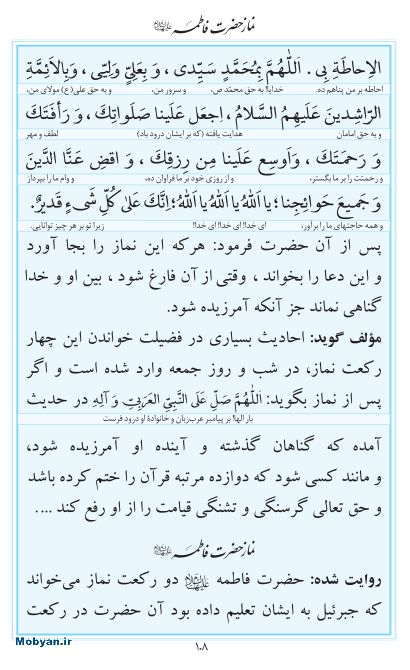 نماز حضرت فاطمه علیهاالسلام
الاِحاطَةِ بی . اَللّهُمَّ بِمُحَمَّدٍ سَیِّدی ، وَ بِعَلِیٍّ وَلِیّی ، وَ بِالاَئِمَّةِ
احاطه بر من پناهم ده. خدایا! به حق محمّد ص، و سرور من، و به حق علی(ع) مولای من،
الرّاشِدینَ عَلَیهِمُ السَّلامُ ، اِجعَل عَلَینا صَلَواتِكَ ، وَ رَأفَتَكَ
و به حق امامان هدایت یافته (که بر ایشان درود باد) لطف و مهر
وَ رَحمَتَكَ ، وَ اَوسِع عَلَینا مِن رِزقِكَ ، وَ اقضِ عَنَّا الدَّینَ
و رحمتت را بر ما بگستر، و از روزی خود بر ما فراوان ده، و وام ما را بپرداز
وَ جَمیعَ حَوائِجِنا ؛ یا اَللهُ یا اَللهُ یا اَللهُ ؛ اِنَّكَ عَلیٰ كُلِّ شَیءٍ قَدیرٌ.
و همه حاجتهای ما را برآور، ای خدا! ای خدا! ای خدا! زیرا تو بر هر چیز توانایی.
پس از آن حضرت فرمود: هرکه این نماز را بجا آورد
و این دعا را بخواند ، وقتی از آن فارغ شود ، بین او و خدا
گناهی نماند جز آنکه آمرزیده شود.
مؤلف گوید: احادیث بسیاری در فضیلت خواندن این چهار
رکعت نماز، در شب و روز جمعه وارد شده است و اگر
پس از نماز بگوید: اَللّهُمَّ صَلِّ عَلَی النَّبِیِّ العَرَبِیِّ وَ آلِهِ در حدیث
بار الها! بر پیامبر عرب‌زبان و خانوادهٔ او درود فرست
آمده که گناهان گذشته و آینده او آمرزیده شود،
و مانند کسی شود که دوازده مرتبه قرآن را ختم کرده باشد
و حق تعالی گرسنگی و تشنگی قیامت را از او رفع کند ....
نماز حضرت فاطمه علیهاالسلام
روایت شده: حضرت فاطمه علیهاالسلام دو رکعت نماز می‌خواند
که جبرئیل به ایشان تعلیم داده بود آن حضرت در رکعت
۱۰۸
Mobyan.ir